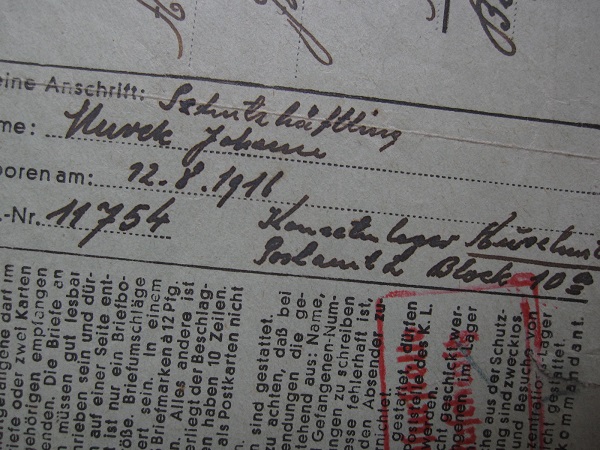 eine Anschrift: Schutzhäftling
me: Johann
boren am: 12.8.1916
.-Nr. 11754
Konzentrlager
Postamt 2 Block 10 a
gefangene darf im
iefe oder zwei Karten
gehörigen empfangen
enden. Die Briefe an
müssen gut lesbar
hrieben sein und dür-
auf einer Seite ent-
ist nur ein Briefbo-
öße. Briefumschläge
ert sein. In einem
Briefmarken à 12 Pfg.
n. Alles andere ist
erliegt der Beschlag-
en haben 10 Zeilen.
als Postkarten nicht
n sind gestattet.
zu achten, daß bei
endungen, die ge-
tehend aus: Name,
Gefangenen-Num-
ngen zu schreiben
sse fehlerhaft ist,
den Absender zu-
ichtet.
gestattet, dürfen
Poststelle des K. L.
werden.
cht geschickt wer-
ngenen im Lager
che aus der Schutz-
ung sind zwecklos.
und Besuche von
Lager
cht gestattet.
kommandant.